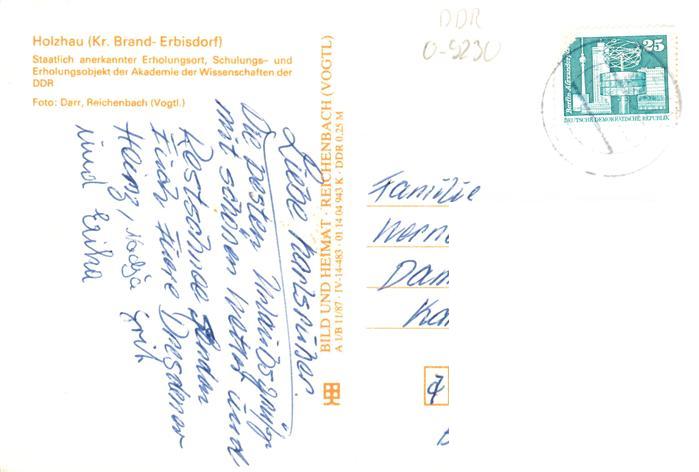 Holzhau (Kr. Brand-Erbisdorf)
Staatlich anerkannter Erholungsort, Schulungs- und
Erholungsobjekt der Akademie der Wissenschaften der
DDR
Foto: Darr, Reichenbach (Vogtl.)
Liebe Karlsruher.
Die besten Urlaubsgrüße
mit schönem Wetter und
senden
Euch Eure Dresdener
Heinz, Nadja Grit
und Erika
BILD UND HEIMAT · REICHENBACH (VOGTL)
A 1/B 11/87 · IV-14-483 · 01 14 04 943 K · DDR 0,25 M
DDR
0-9230
25
Berlin, Alexanderplatz
DEUTSCHE DEMOKRATISCHE REPUBLIK
Familie
Wern
Dam
Ka